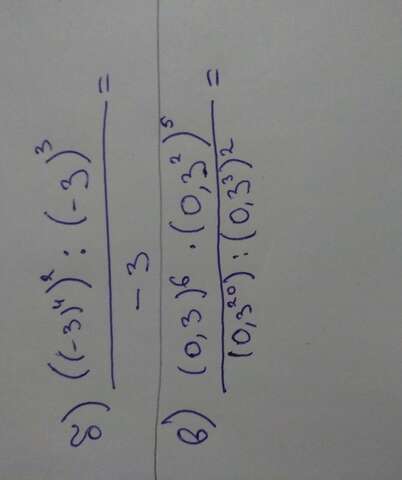 б) ((-3)⁴)² : (-3)³ =
-3
в) (0,3)⁶ · (0,3²)⁵ =
(0,3²⁰) : (0,3³)²